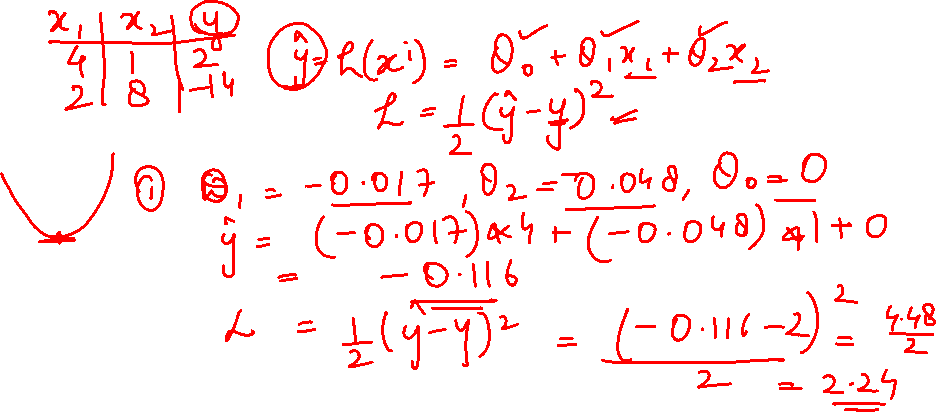 x₁ | x₂ | y
4 | 1 | 2
2 | 8 | -14
ŷ = h(xⁱ) = θ₀ + θ₁x₁ + θ₂x₂
L = 1/2 (ŷ - y)²
① θ₁ = -0.017, θ₂ = -0.048, θ₀ = 0
ŷ = (-0.017)*4 + (-0.048)*1 + 0
= -0.116
L = 1/2 (ŷ - y)² = (-0.116 - 2)²/2 = 4.48/2
= 2.24